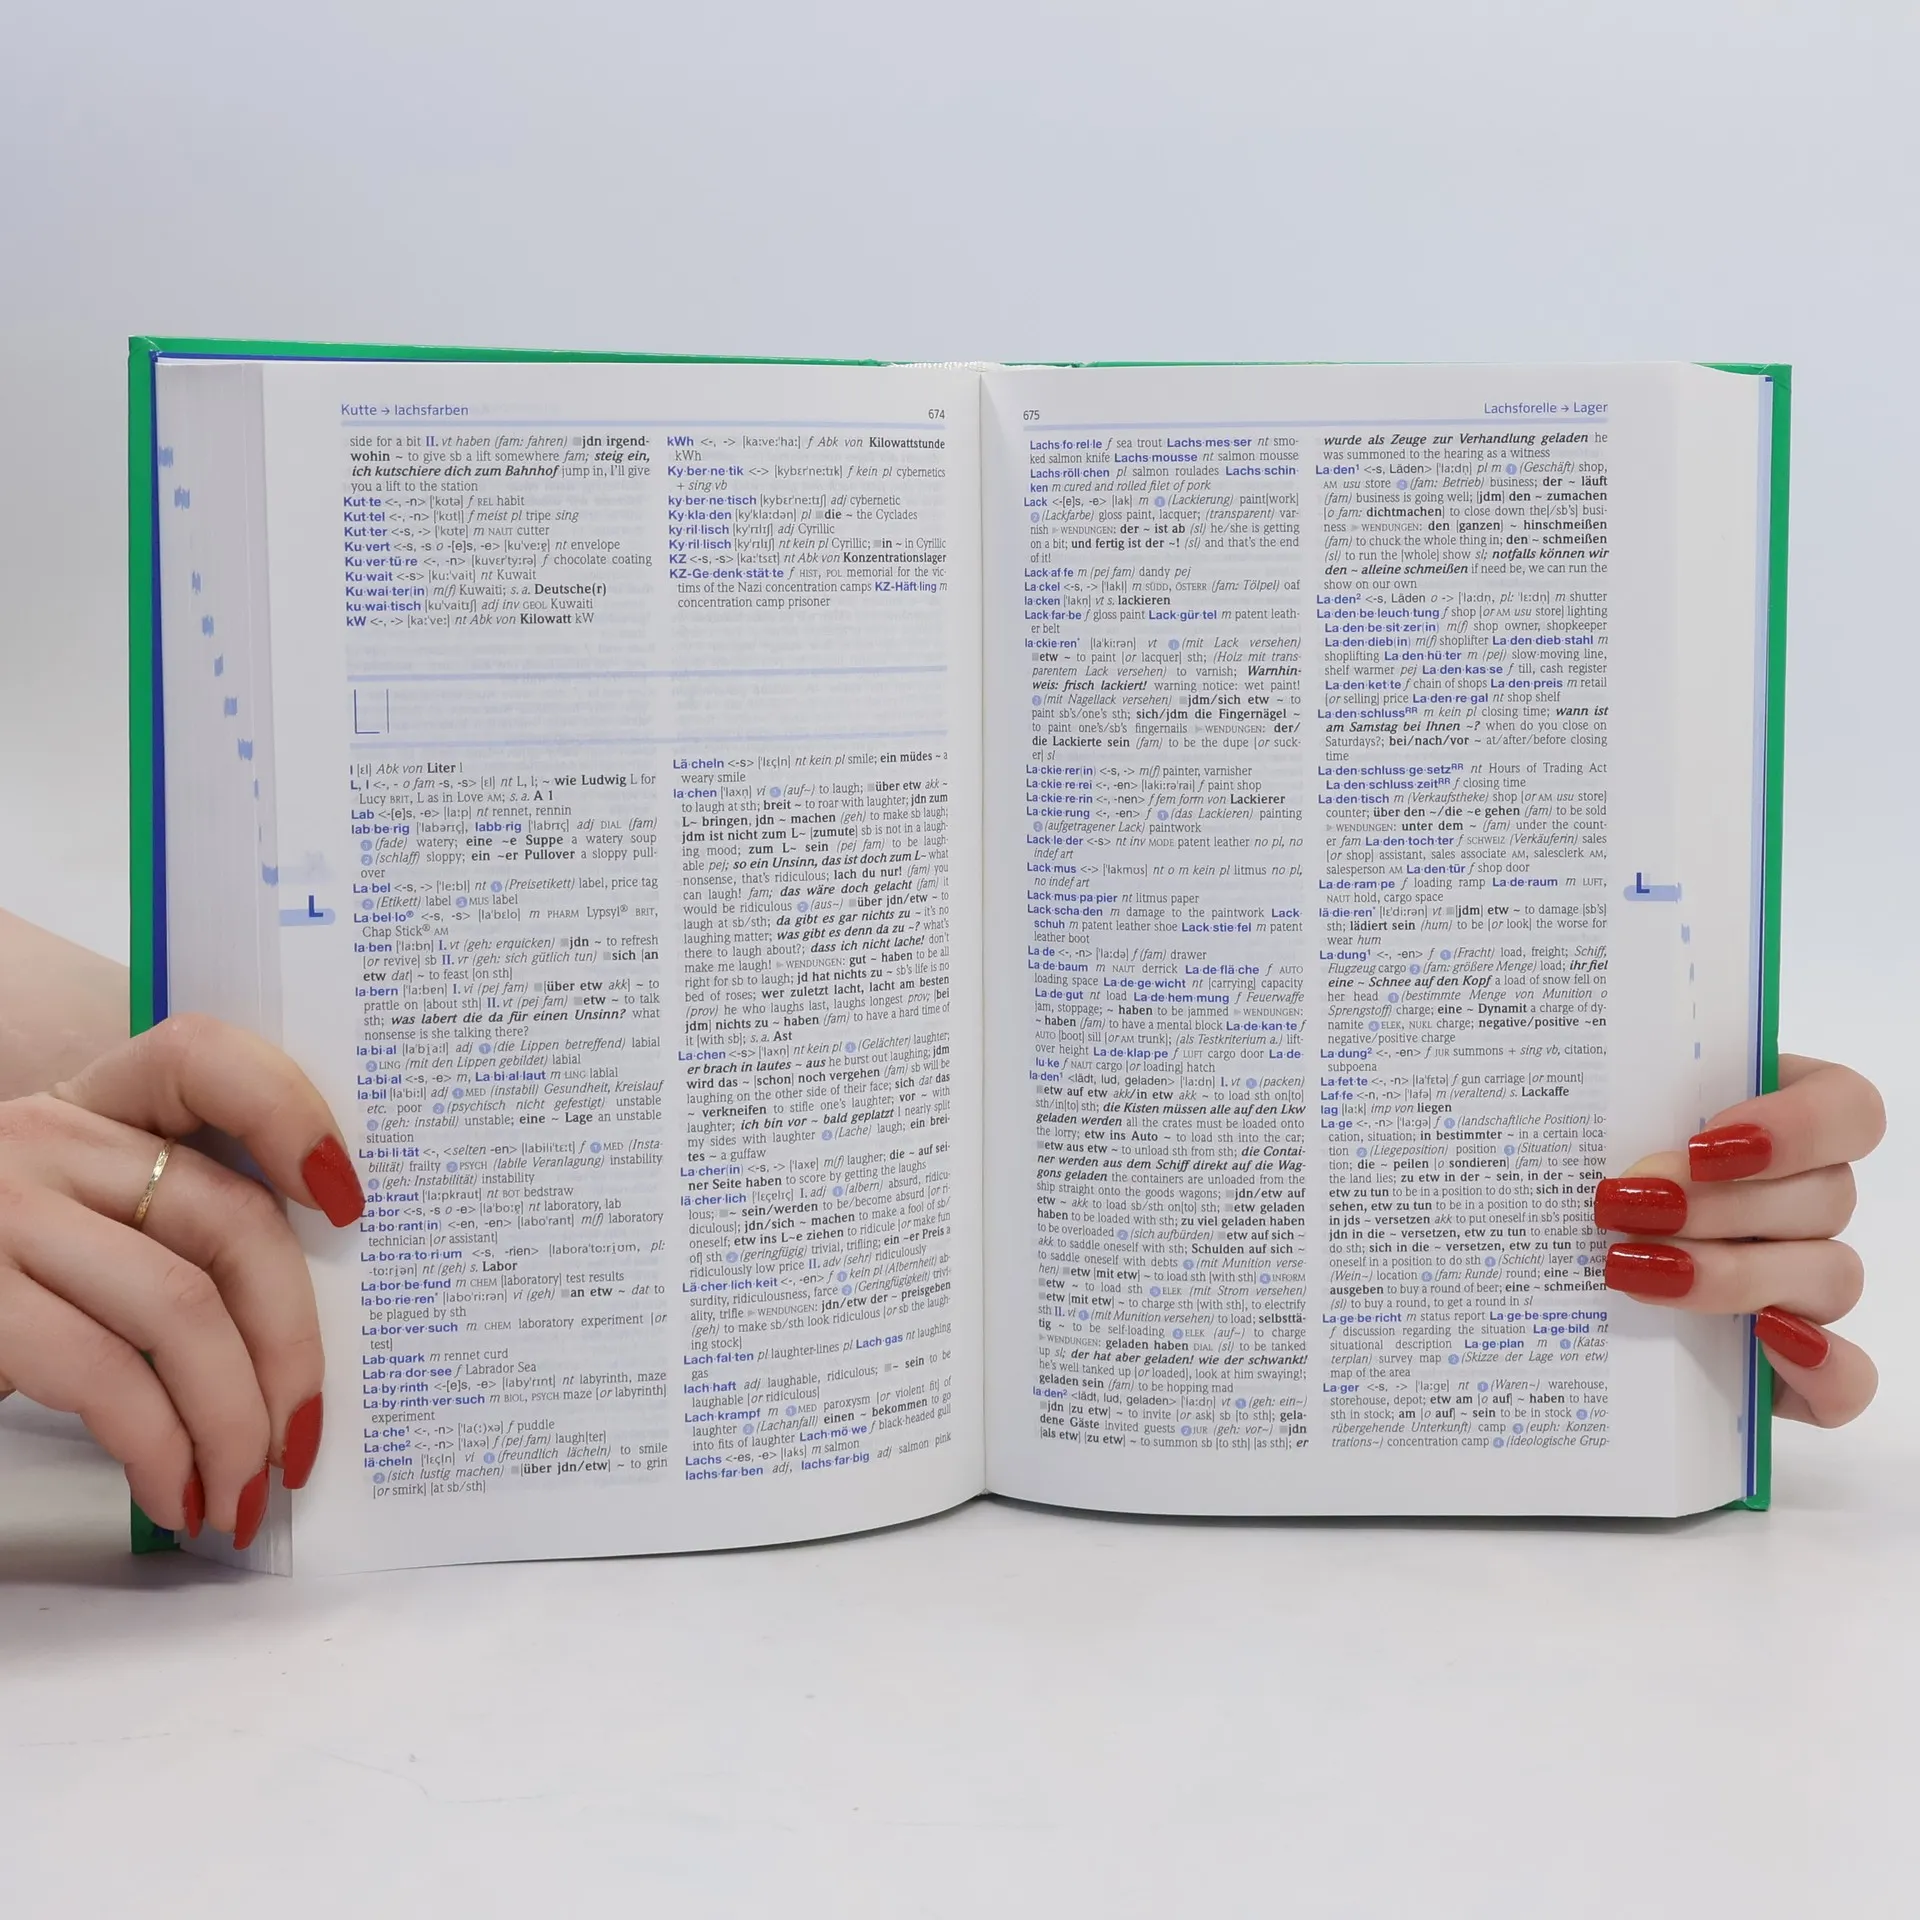 Kutte → lachsfarben
674
side for a bit II. vt haben (fam: fahren) ■jdn irgend-
wohin ~ to give sb a lift somewhere fam; steig ein,
ich kutschiere dich zum Bahnhof jump in, I'll give
you a lift to the station
Kut·te <-, -n> ['kʊtə] f REL habit
Kut·tel <-, -n> ['kʊtl̩] f meist pl tripe sing
Kut·ter <-s, -> ['kʊtɐ] m NAUT cutter
Ku·vert <-s, -s o -[e]s, -e> [ku'veːɐ̯] nt envelope
Ku·ver·tü·re <-, -n> [kuvɛr'tyːrə] f chocolate coating
Ku·wait <-s> [ku:'vait] nt Kuwait
Ku·wai·ter(in) m(f) Kuwaiti; s. a. Deutsche(r)
ku·wai·tisch [ku'vaitɪʃ] adj inv GEOL Kuwaiti
kW <-, -> [kaː'veː] nt Abk von Kilowatt kW
kWh <-, -> [kaːveː'haː] f Abk von Kilowattstunde
kWh
Ky·ber·ne·tik <-> [kybɛr'neːtɪk] f kein pl cybernetics
+ sing vb
ky·ber·ne·tisch [kybɛr'neːtɪʃ] adj cybernetic
Ky·kla·den [ky'klaːdən] pl ■die ~ the Cyclades
ky·ril·lisch [ky'rɪlɪʃ] adj Cyrillic
Ky·ril·lisch [ky'rɪlɪʃ] nt kein pl Cyrillic; ■in ~ in Cyrillic
KZ <-s, -s> [kaː'tsɛt] nt Abk von Konzentrationslager
KZ-Ge·denk·stät·te f HIST, POL memorial for the vic-
tims of the Nazi concentration camps KZ-Häft·ling m
concentration camp prisoner
L
l [ɛl] Abk von Liter l
L, l <-, - o fam -s, -s> [ɛl] nt L, l; ~ wie Ludwig L for
Lucy BRIT, L as in Love AM; s. a. A 1
Lab <-[e]s, -e> [laːp] nt rennet, rennin
lab·be·rig ['labərɪç], labb·rig ['labrɪç] adj DIAL (fam)
① (fade) watery; eine ~e Suppe a watery soup
② (schlaff) sloppy; ein ~er Pullover a sloppy pull-
over
La·bel <-s, -> ['leːbl̩] nt ① (Preisetikett) label, price tag
② (Etikett) label ③ MUS label
La·bel·lo® <-s, -s> [la'bɛlo] m PHARM Lypsyl® BRIT,
Chap Stick® AM
la·ben ['laːbn̩] I. vt (geh: erquicken) ■jdn ~ to refresh
[or revive] sb II. vr (geh: sich gütlich tun) ■sich [an
etw dat] ~ to feast [on sth]
la·bern ['laːbɐn] I. vi (pej fam) ■[über etw akk] ~ to
prattle on [about sth] II. vt (pej fam) ■etw ~ to talk
sth; was labert die da für einen Unsinn? what
nonsense is she talking there?
la·bi·al [la'bi̯aːl] adj ① (die Lippen betreffend) labial
② LING (mit den Lippen gebildet) labial
La·bi·al <-s, -e> m, La·bi·al·laut m LING labial
la·bil [la'biːl] adj ① MED (instabil) Gesundheit, Kreislauf
etc. poor ② (psychisch nicht gefestigt) unstable
③ (geh: instabil) unstable; eine ~ Lage an unstable
situation
La·bi·li·tät <-, <selten -en> [labili'tɛːt] f ① MED (Insta-
bilität) frailty ② PSYCH (labile Veranlagung) instability
③ (geh: Instabilität) instability
ab·kraut ['laːpkraut] nt BOT bedstraw
La·bor <-s, -s o -e> [la'boːɐ̯] nt laboratory, lab
La·bo·rant(in) <-en, -en> [labo'rant] m(f) laboratory
technician [or assistant]
La·bo·ra·to·ri·um <-s, -rien> [labora'toːri̯ʊm, pl:
-toːri̯ən] nt (geh) s. Labor
La·bor·be·fund m CHEM [laboratory] test results
la·bo·rie·ren* [labo'riːrən] vi (geh) ■an etw ~ dat to
be plagued by sth
La·bor·ver·such m CHEM laboratory experiment [or
test]
Lab·quark m rennet curd
Lab·ra·dor·see f Labrador Sea
La·by·rinth <-[e]s, -e> [laby'rɪnt] nt labyrinth, maze
La·by·rinth·ver·such m BIOL, PSYCH maze [or labyrinth]
experiment
La·che¹ <-, -n> ['la(ː)xə] f puddle
La·che² <-, -n> ['laxə] f (pej fam) laugh[ter]
lä·cheln ['lɛçl̩n] vi ① (freundlich lächeln) to smile
② (sich lustig machen) ■[über jdn/etw] ~ to grin
[or smirk] [at sb/sth]
Lä·cheln <-s> ['lɛçl̩n] nt kein pl smile; ein müdes ~ a
weary smile
la·chen ['laxn̩] vi ① (auf~) to laugh; ■über etw akk ~
to laugh at sth; breit ~ to roar with laughter; jdn zum
L~ bringen, jdn ~ machen (geh) to make sb laugh;
jdm ist nicht zum L~ [zumute] sb is not in a laugh-
ing mood; zum L~ sein (pej fam) to be laugh-
able pej; so ein Unsinn, das ist doch zum L~ what
nonsense, that's ridiculous; lach du nur! (fam) you
can laugh! fam; das wäre doch gelacht (fam) it
would be ridiculous ② (aus~) ■über jdn/etw ~ to
laugh at sb/sth; da gibt es gar nichts zu ~ it's no
laughing matter; was gibt es denn da zu ~? what's
there to laugh about?; dass ich nicht lache! don't
make me laugh! ▶ WENDUNGEN: gut ~ haben to be all
right for sb to laugh; jd hat nichts zu ~ sb's life is no
bed of roses; wer zuletzt lacht, lacht am besten
(prov) he who laughs last, laughs longest prov; [bei
jdm] nichts zu ~ haben (fam) to have a hard time of
it [with sb]; s. a. Ast
La·chen <-s> ['laxn̩] nt kein pl ① (Gelächter) laughter;
er brach in lautes ~ aus he burst out laughing; jdm
wird das ~ [schon] noch vergehen (fam) sb will be
laughing on the other side of their face; sich dat das
~ verkneifen to stifle one's laughter; vor ~ with
laughter; ich bin vor ~ bald geplatzt I nearly split
my sides with laughter ② (Lache) laugh; ein brei-
tes ~ a guffaw
La·cher(in) <-s, -> ['laxɐ] m(f) laugher; die ~ auf sei-
ner Seite haben to score by getting the laughs
lä·cher·lich ['lɛçɐlɪç] I. adj ① (albern) absurd, ridicu-
lous; ■~ sein/werden to be/become absurd [or ri-
diculous]; jdn/sich ~ machen to make a fool of sb/
oneself; etw ins L~e ziehen to ridicule [or make fun
of] sth ② (geringfügig) trivial, trifling; ein ~er Preis a
ridiculously low price II. adv (sehr) ridiculously
Lä·cher·lich·keit <-, -en> f ① kein pl (Albernheit) ab-
surdity, ridiculousness, farce ② (Geringfügigkeit) trivi-
ality, trifle ▶ WENDUNGEN: jdn/etw der ~ preisgeben
(geh) to make sb/sth look ridiculous [or sb the laugh-
ing stock]
Lach·fal·ten pl laughter-lines pl Lach·gas nt laughing
gas
lach·haft adj laughable, ridiculous; ■~ sein to be
laughable [or ridiculous]
Lach·krampf m ① MED paroxysm [or violent fit] of
laughter ② (Lachanfall) einen ~ bekommen to go
into fits of laughter Lach·mö·we f black-headed gull
Lachs <-es, -e> [laks] m salmon
lachs·far·ben adj, lachs·far·big adj salmon pink
L
675
Lachsforelle → Lager
Lachs·fo·rel·le f sea trout Lachs·mes·ser nt smo-
ked salmon knife Lachs·mousse nt salmon mousse
Lachs·röll·chen pl salmon roulades Lachs·schin-
ken m cured and rolled filet of pork
Lack <-[e]s, -e> [lak] m ① (Lackierung) paint[work]
② (Lackfarbe) gloss paint, lacquer; (transparent) var-
nish ▶ WENDUNGEN: der ~ ist ab (sl) he/she is getting
on a bit; und fertig ist der ~! (sl) and that's the end
of it!
Lack·af·fe m (pej fam) dandy pej
La·ckel <-s, -> ['lakl̩] m SÜDD, ÖSTERR (fam: Tölpel) oaf
la·cken ['lakn̩] vt s. lackieren
Lack·far·be f gloss paint Lack·gür·tel m patent leath-
er belt
la·ckie·ren* [la'kiːrən] vt ① (mit Lack versehen)
■etw ~ to paint [or lacquer] sth; (Holz mit trans-
parentem Lack versehen) to varnish; Warnhin-
weis: frisch lackiert! warning notice: wet paint!
② (mit Nagellack versehen) ■jdm/sich etw ~ to
paint sb's/one's sth; sich/jdm die Fingernägel ~
to paint one's/sb's fingernails ▶ WENDUNGEN: der/
die Lackierte sein (fam) to be the dupe [or suck-
er] sl
La·ckie·rer(in) <-s, -> m(f) painter, varnisher
La·ckie·re·rei <-, -en> [lakiːrə'rai] f paint shop
La·ckie·re·rin <-, -nen> f fem form von Lackierer
La·ckie·rung <-, -en> f ① (das Lackieren) painting
② (aufgetragener Lack) paintwork
Lack·le·der <-s> nt inv MODE patent leather no pl, no
indef art
Lack·mus <-> ['lakmʊs] nt o m kein pl litmus no pl,
no indef art
Lack·mus·pa·pier nt litmus paper
Lack·scha·den m damage to the paintwork Lack-
schuh m patent leather shoe Lack·stie·fel m patent
leather boot
La·de <-, -n> ['laːdə] f (fam) drawer
La·de·baum m NAUT derrick La·de·flä·che f AUTO
loading space La·de·ge·wicht nt [carrying] capacity
La·de·gut nt load La·de·hem·mung f Feuerwaffe
jam, stoppage; ~ haben to be jammed ▶ WENDUNGEN:
~ haben (fam) to have a mental block La·de·kan·te f
AUTO [boot] sill [or AM trunk]; (als Testkriterium a.) lift-
over height La·de·klap·pe f LUFT cargo door La·de-
lu·ke f NAUT cargo [or loading] hatch
la·den¹ <lädt, lud, geladen> ['laːdn̩] I. vt ① (packen)
■etw auf etw akk/in etw akk ~ to load sth on[to]
sth/in[to] sth; die Kisten müssen alle auf den Lkw
geladen werden all the crates must be loaded onto
the lorry; etw ins Auto ~ to load sth into the car;
■etw aus etw ~ to unload sth from sth; die Contai-
ner werden aus dem Schiff direkt auf die Wag-
gons geladen the containers are unloaded from the
ship straight onto the goods wagons; ■jdn/etw auf
etw ~ akk to load sb/sth on[to] sth; ■etw geladen
haben to be loaded with sth; zu viel geladen haben
to be overloaded ② (sich aufbürden) ■etw auf sich ~
akk to saddle oneself with sth; Schulden auf sich ~
to saddle oneself with debts ③ (mit Munition verse-
hen) ■etw [mit etw] ~ to load sth [with sth] ④ INFORM
■etw ~ to load sth ⑤ ELEK (mit Strom versehen)
■etw [mit etw] ~ to charge sth [with sth], to electrify
sth II. vi ① (mit Munition versehen) to load; selbsttä-
tig ~ to be self-loading ② ELEK (auf~) to charge
▶ WENDUNGEN: geladen haben DIAL (sl) to be tanked
up sl; der hat aber geladen! wie der schwankt!
he's well tanked up [or loaded], look at him swaying!;
geladen sein (fam) to be hopping mad
la·den² <lädt, lud, geladen> ['laːdn̩] vt ① (geh: ein~)
■jdn [zu etw] ~ to invite [or ask] sb [to sth]; gela-
dene Gäste invited guests ② JUR (geh: vor~) ■jdn
[als etw] [zu etw] ~ to summon sb [to sth] [as sth]; er
wurde als Zeuge zur Verhandlung geladen he
was summoned to the hearing as a witness
La·den¹ <-s, Läden> ['laːdn̩] pl m ① (Geschäft) shop,
AM usu store ② (fam: Betrieb) business; der ~ läuft
(fam) business is going well; [jdm] den ~ zumachen
[o fam: dichtmachen] to close down the[/sb's] busi-
ness ▶ WENDUNGEN: den [ganzen] ~ hinschmeißen
(fam) to chuck the whole thing in; den ~ schmeißen
(sl) to run the [whole] show sl; notfalls können wir
den ~ alleine schmeißen if need be, we can run the
show on our own
La·den² <-s, Läden o -> ['laːdn̩, pl: 'lɛːdn̩] m shutter
La·den·be·leuch·tung f shop [or AM usu store] lighting
La·den·be·sit·zer(in) m(f) shop owner, shopkeeper
La·den·dieb(in) m(f) shoplifter La·den·dieb·stahl m
shoplifting La·den·hü·ter m (pej) slow-moving line,
shelf warmer pej La·den·kas·se f till, cash register
La·den·ket·te f chain of shops La·den·preis m retail
[or selling] price La·den·re·gal nt shop shelf
La·den·schlussᴿᴿ m kein pl closing time; wann ist
am Samstag bei Ihnen ~? when do you close on
Saturdays?; bei/nach/vor ~ at/after/before closing
time
La·den·schluss·ge·setzᴿᴿ nt Hours of Trading Act
La·den·schluss·zeitᴿᴿ f closing time
La·den·tisch m (Verkaufstheke) shop [or AM usu store]
counter; über den ~/die ~e gehen (fam) to be sold
▶ WENDUNGEN: unter dem ~ (fam) under the count-
er fam La·den·toch·ter f SCHWEIZ (Verkäuferin) sales
[or shop] assistant, sales associate AM, salesclerk AM,
salesperson AM La·den·tür f shop door
La·de·ram·pe f loading ramp La·de·raum m LUFT,
NAUT hold, cargo space
lä·die·ren* [lɛ'diːrən] vt ■[jdm] etw ~ to damage [sb's]
sth; lädiert sein (hum) to be [or look] the worse for
wear hum
La·dung¹ <-, -en> f ① (Fracht) load, freight; Schiff,
Flugzeug cargo ② (fam: größere Menge) load; ihr fiel
eine ~ Schnee auf den Kopf a load of snow fell on
her head ③ (bestimmte Menge von Munition o
Sprengstoff) charge; eine ~ Dynamit a charge of dy-
namite ④ ELEK, NUKL charge; negative/positive ~en
negative/positive charge
La·dung² <-, -en> f JUR summons + sing vb, citation,
subpoena
La·fet·te <-, -n> [la'fɛtə] f gun carriage [or mount]
Laf·fe <-n, -n> ['lafə] m (veraltend) s. Lackaffe
lag [laːk] imp von liegen
La·ge <-, -n> ['laːgə] f ① (landschaftliche Position) lo-
cation, situation; in bestimmter ~ in a certain loca-
tion ② (Liegeposition) position ③ (Situation) situa-
tion; die ~ peilen [o sondieren] (fam) to see how
the land lies; zu etw in der ~ sein, in der ~ sein,
etw zu tun to be in a position to do sth; sich in der
sehen, etw zu tun to be in a position to do sth;
in jds ~ versetzen akk to put oneself in sb's
jdn in die ~ versetzen, etw zu tun to enable sb to
do sth; sich in die ~ versetzen, etw zu tun to put
oneself in a position to do sth ④ (Schicht) layer ⑤ AGR
(Wein~) location ⑥ (fam: Runde) round; eine ~ Bier
ausgeben to buy a round of beer; eine ~ schmeißen
(sl) to buy a round, to get a round in sl
La·ge·be·richt m status report La·ge·be·spre·chung
f discussion regarding the situation La·ge·bild nt
situational description La·ge·plan m ① (Katas-
terplan) survey map ② (Skizze der Lage von etw)
map of the area
La·ger <-s, -> ['laːgɐ] nt ① (Waren~) warehouse,
storehouse, depot; etw am [o auf] ~ haben to have
sth in stock; am [o auf] ~ sein to be in stock ② (vo-
rübergehende Unterkunft) camp ③ (euph: Konzen-
trations~) concentration camp ④ (ideologische Grup-
L